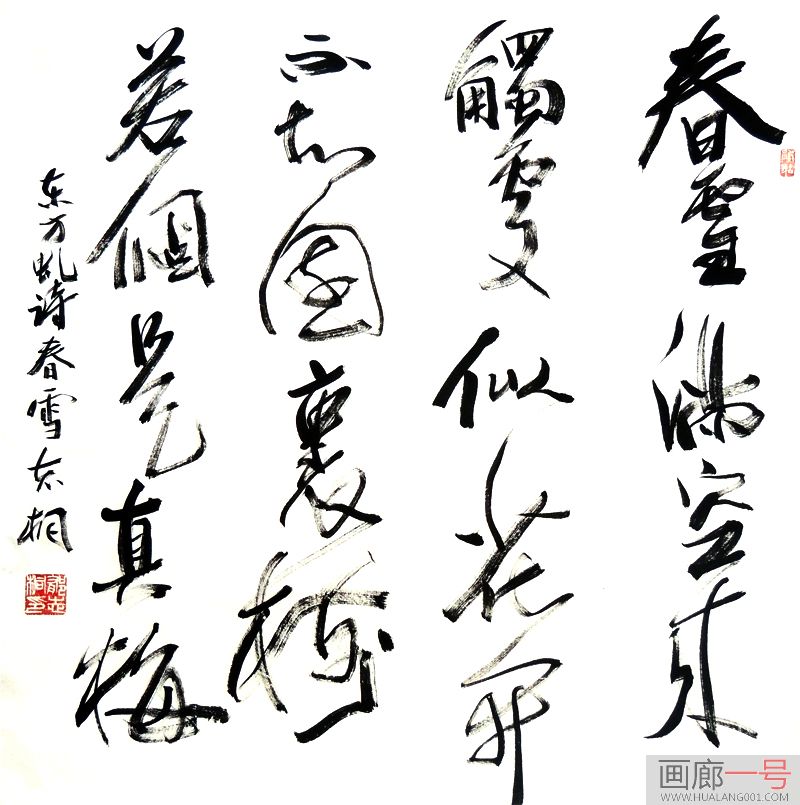 春雪滿空來
觸處似花开
不知園裏樹
若個是真梅
东方虬诗春雪志桐
画廊一号
WWW.HUALANG001.COM